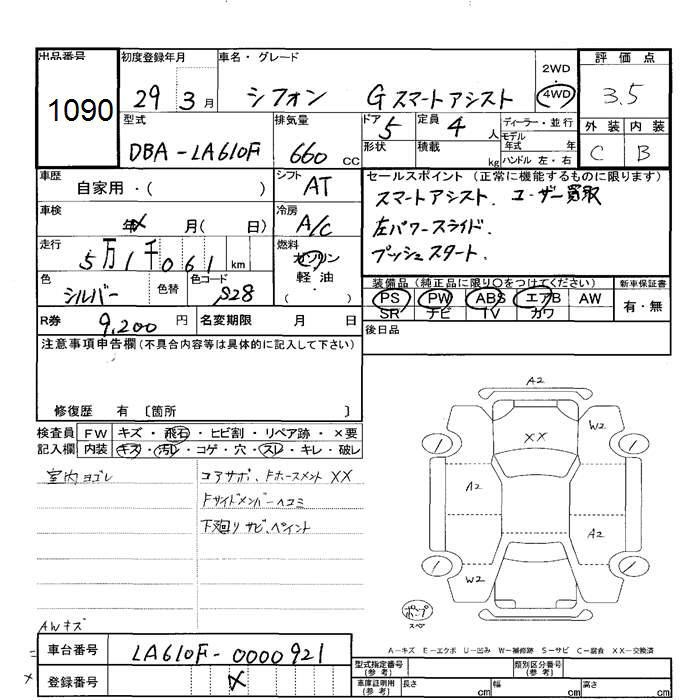 出品番号 初度登録年月 車名・グレード 評価点
1090 29 3月 シフォン Gスマートアシスト 2WD・4WD 3.5
型式 排気量 ドア 5 定員 4人 ディーラー・並行 外装 内装
DBA-LA610F 660 cc 形状 積載 kg モデル年式 年 ハンドル 左・右 C B
車歴 自家用・( ) シフト AT セールスポイント(正常に機能するものに限ります)
車検 年 月( 日) 冷房 A/C スマートアシスト、ユーザー買取
左パワースライド、
走行 5万1千061km 燃料 ガソリン 軽油・( ) プッシュスタート、
色 シルバー 色替 色コード S28 装備品(純正品に限り○をつけてください) 新車保証書
PS PW ABS エアB AW 有・無
SR ナビ TV カワ
R券 9,200円 名変期限 月 日 後日品
注意事項申告欄(不具合内容等は具体的に記入して下さい)
修復歴 有 〔箇所 〕
検査員 FW キズ・飛石・ヒビ割・リペア跡・×要
記入欄 内装 キズ・汚レ・コゲ・穴・スレ・キレ・破レ
室内ヨゴレ コアサポ、Fホースメント XX
Fサイドメンバーヘコミ
下廻りサビ、ペイント
A2
XX W2
A2 A2
W2
ポンプ
スペア
AWキズ
車台番号 LA610F-0000921
登録番号 X
A-キズ E-エクボ U-凹み W-補修跡 S-サビ C-腐食 XX-交換済
型式指定番号(参考) 類別区分番号(参考)
車庫証明用(参考) 長さ cm 幅 cm 高さ cm